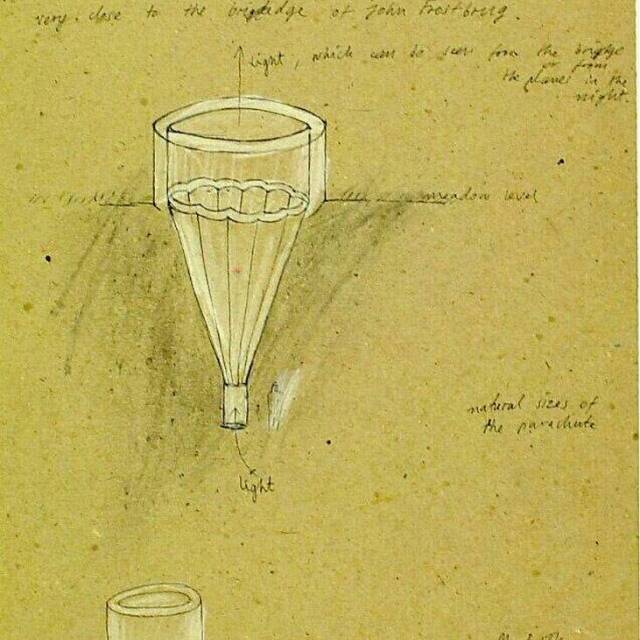 very close to the bridge of John Frostburg.
light, which can be seen from the bridge
or from
the planes in the
night.
meadow level
natural sizes of
the parachute
light